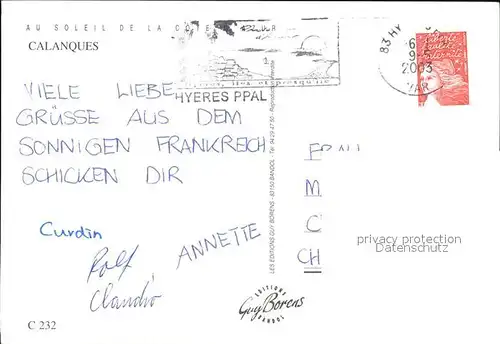 AU SOLEIL DE LA COTE
CALANQUES
HYERES PPAL
83 HY
6
9
2003
VAR
VIELE LIEBE
GRÜSSE AUS DEM
SONNIGEN FRANKREICH
SCHICKEN DIR
Curdin
Rolf
ANNETTE
Claudio
FRAU
M
C
CH
privacy protection
Datenschutz
LES EDITIONS GUY BORENS - 83150 BANDOL - Tél. 94 29 47 50 - Reproduction interdite
EDITIONS
Guy Borens
BANDOL
C 232